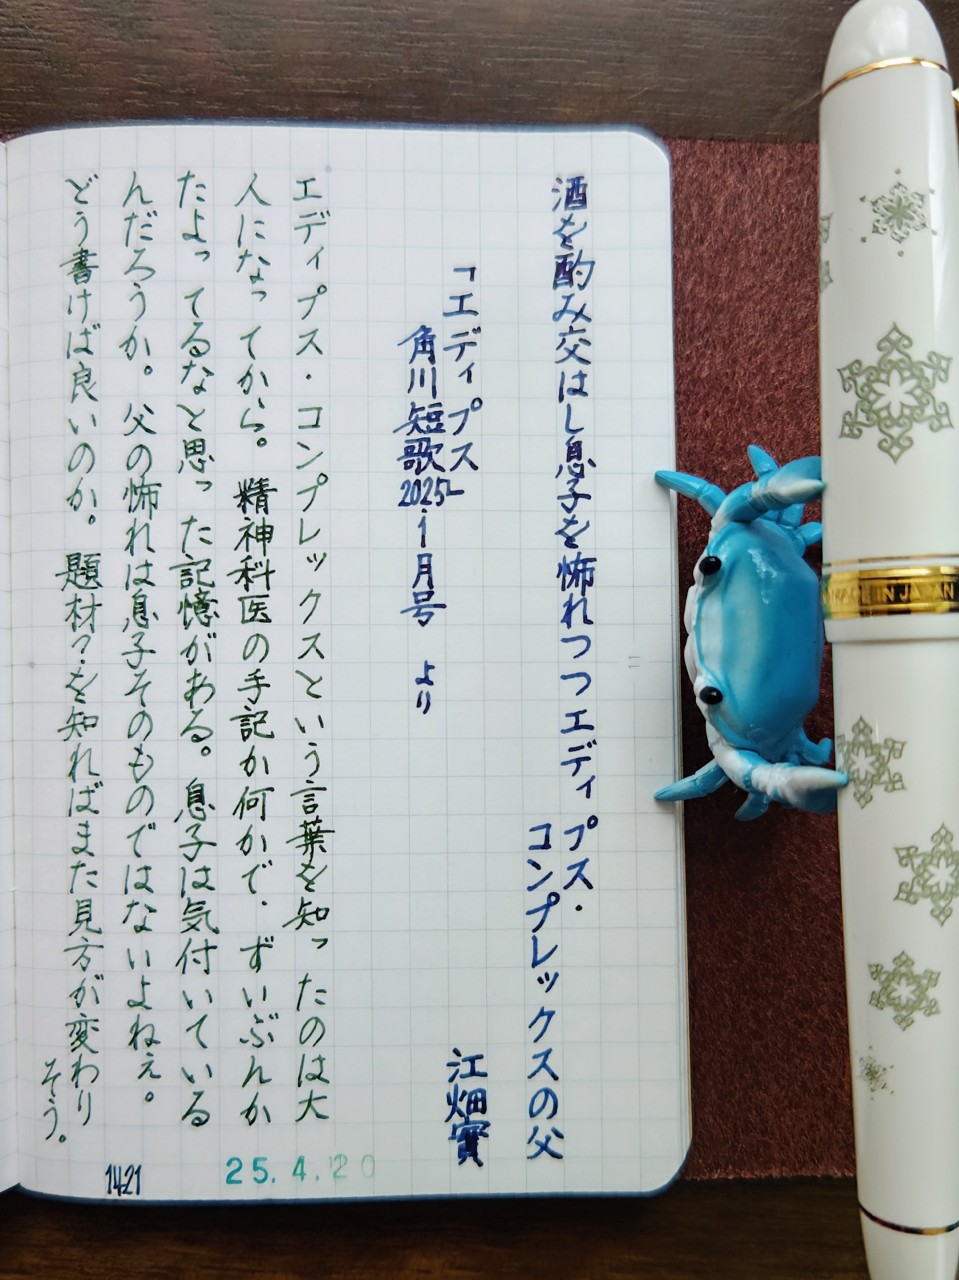 酒を酌み交はし息子を怖れつつエディプス・
コンプレックスの父
江畑實
「エディプス」
角川短歌2025.1月号 より
エディプス・コンプレックスという言葉を知ったのは大
人になってから。精神科医の手記か何かで.ずいぶんか
たよってるなと思った記憶がある。息子は気付いている
んだろうか。父の怖れは息子そのものではないよねぇ。
どう書けば良いのか。題材?を知ればまた見方が変わり
そう。
25.4.20
1421
MADE IN JAPAN